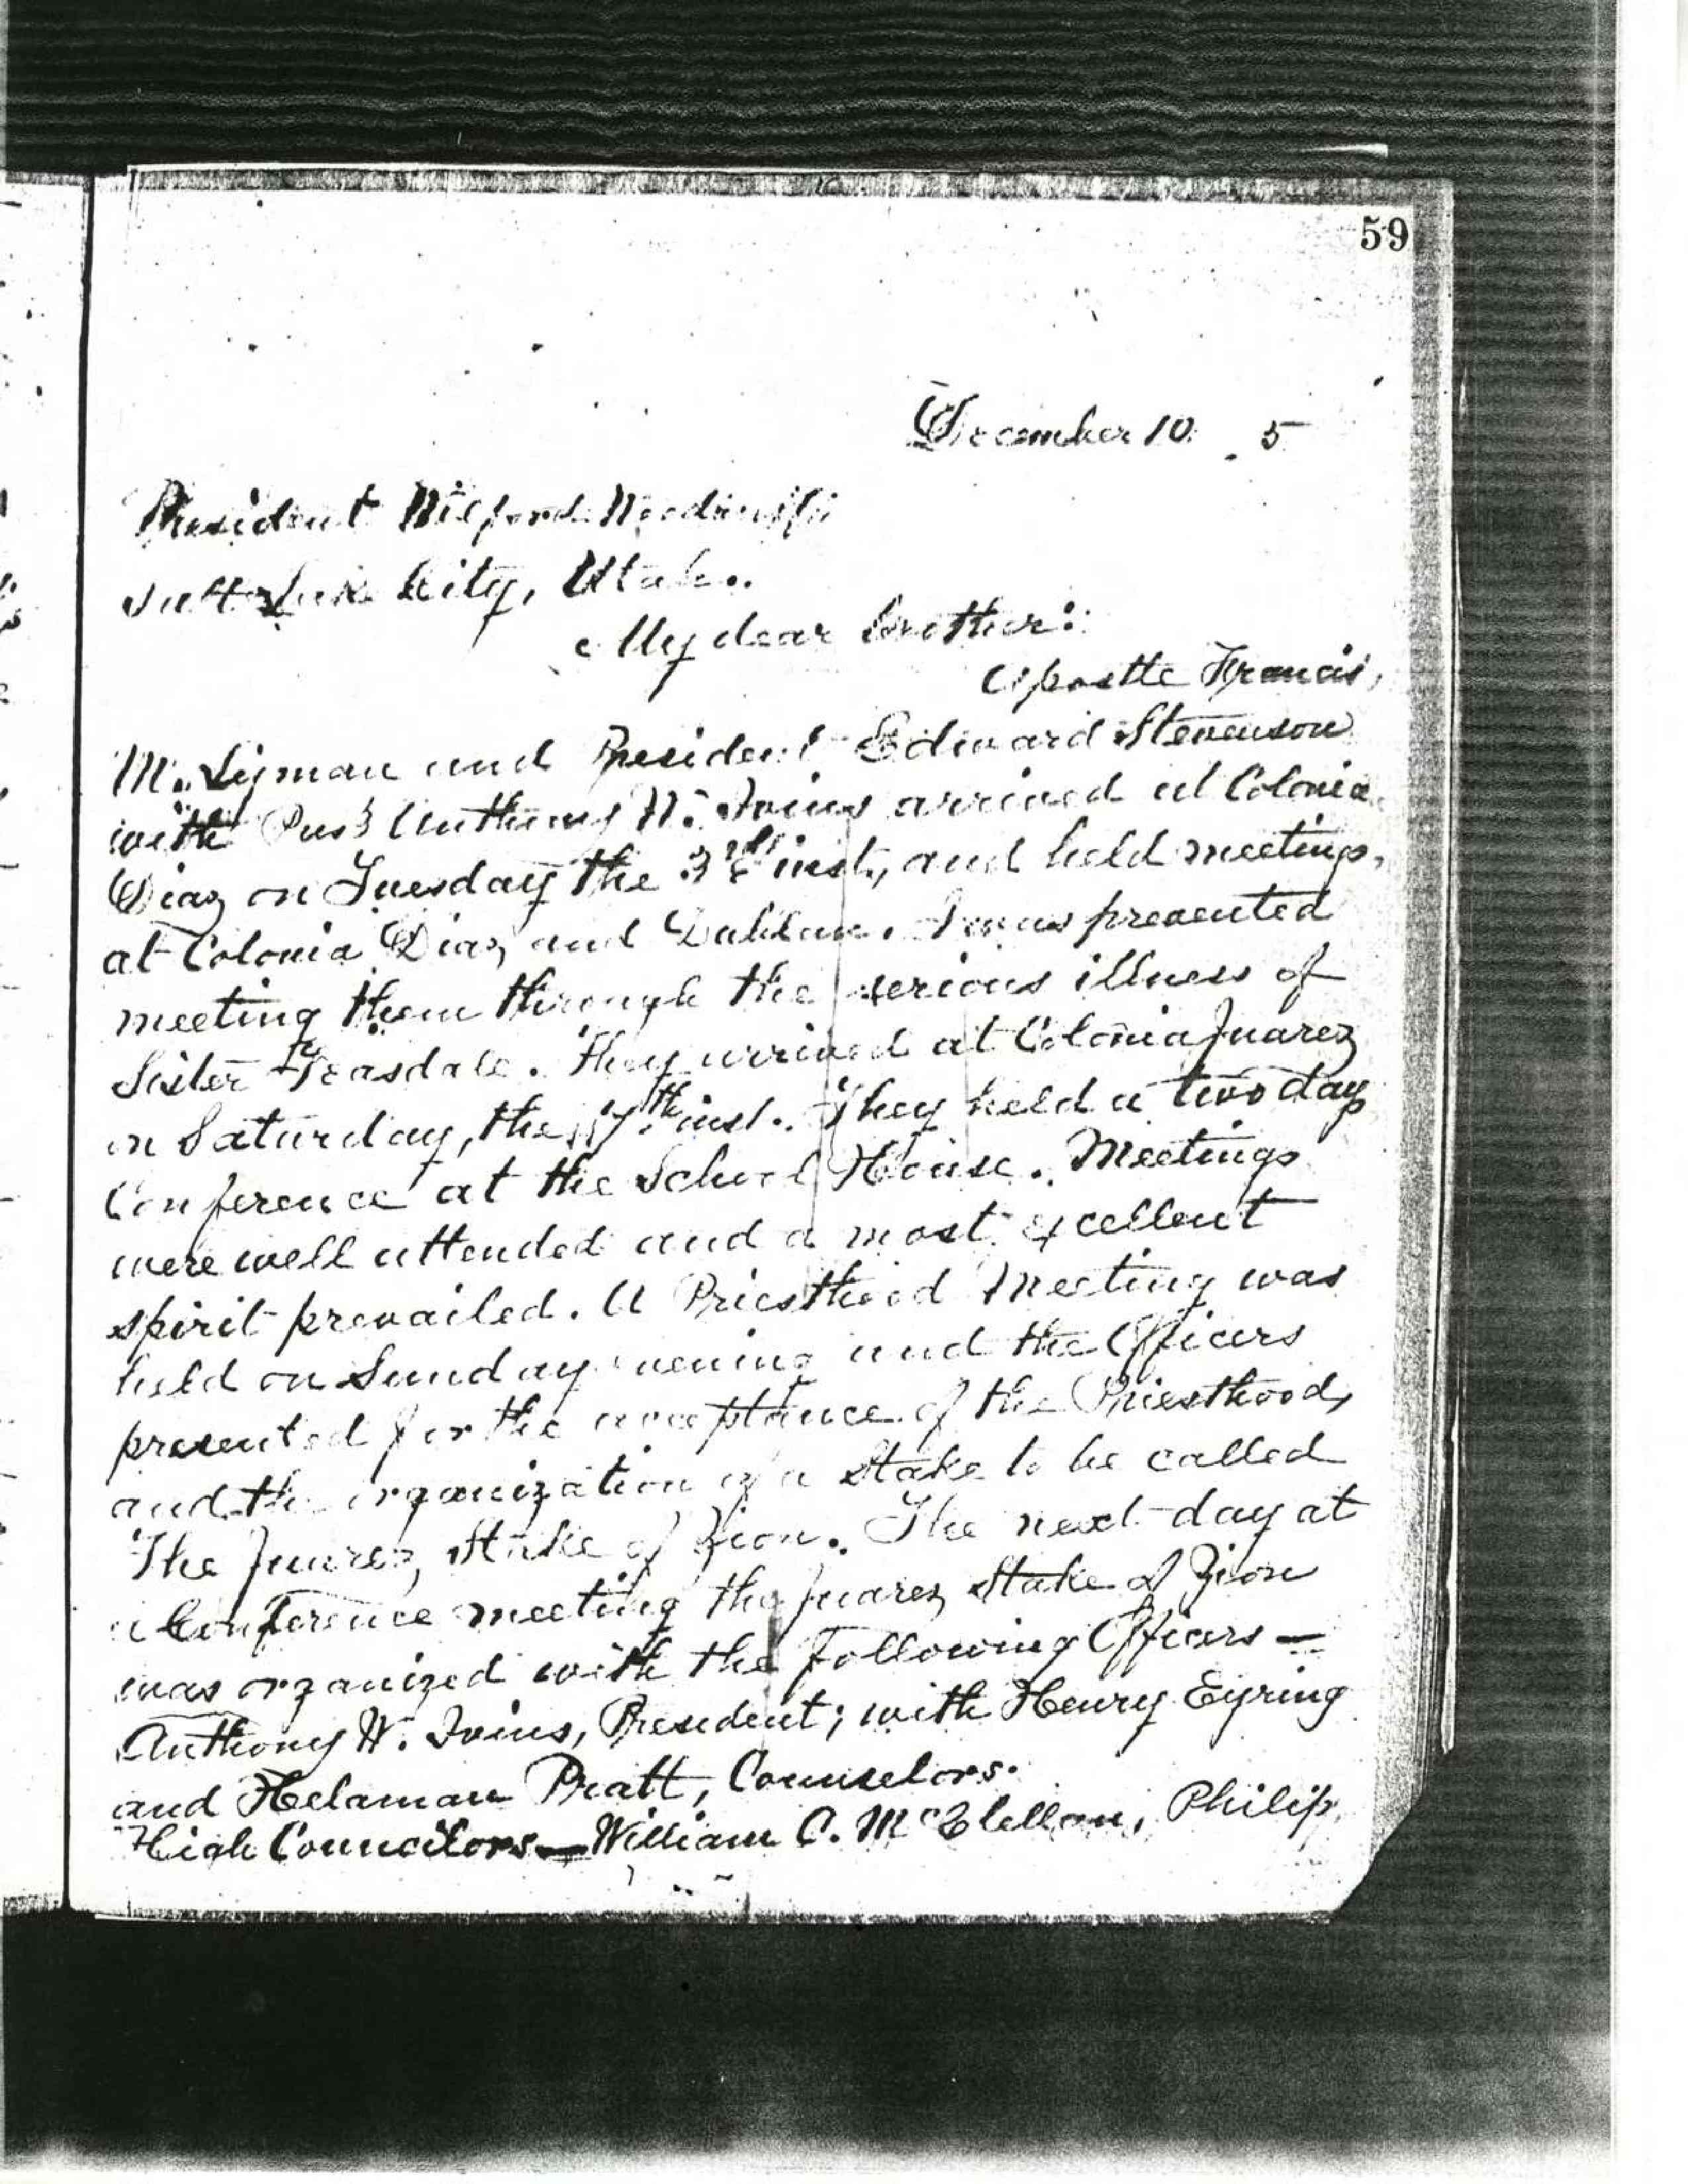 59
December 10. 5
President Wilford Woodruff
Salt Lake City, Utah.
My dear brother:
Apostle Francis,
M. Lyman and President Edward Stevenson
with Anthony W. Ivins arrived at Colonia
Diaz on Tuesday the 3rd inst, and held meetings,
at Colonia Diaz and Dublan. I was prevented
meeting them through the serious illness of
Sister Teasdale. They arrived at Colonia Juarez
on Saturday, the 7th inst. They held a two days
Conference at the School House. Meetings
were well attended and a most excellent
spirit prevailed. A Priesthood Meeting was
held on Sunday evening and the Officers
presented for the acceptance of the Priesthood,
and the organization of a Stake to be called
The Juarez Stake of Zion. The next day at
a Conference meeting the Juarez Stake of Zion
was organized with the following Officers —
Anthony W. Ivins, President; with Henry Eyring
and Helaman Pratt, Counselors.
High Councilors — William C. McClellan, Philip